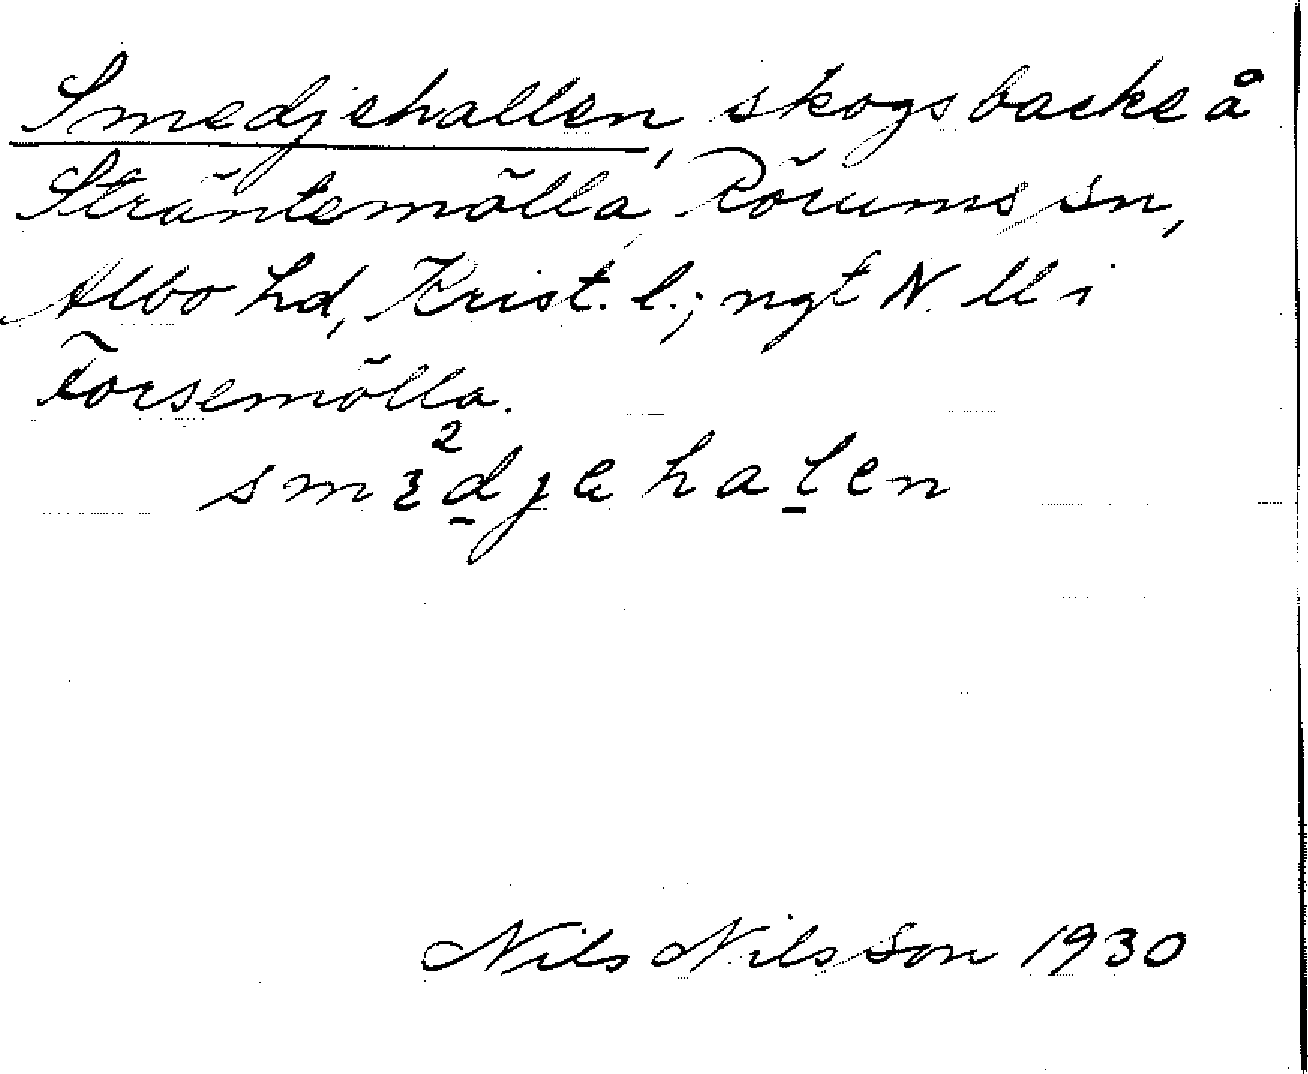 Smedjehallen, skogsbacke å
Sträntemölla, Rörums sn,
Albo hd, Krist. l.; ngt N. 
Forsemölla.
smɛ²djehalen
Nils Nilsson 1930